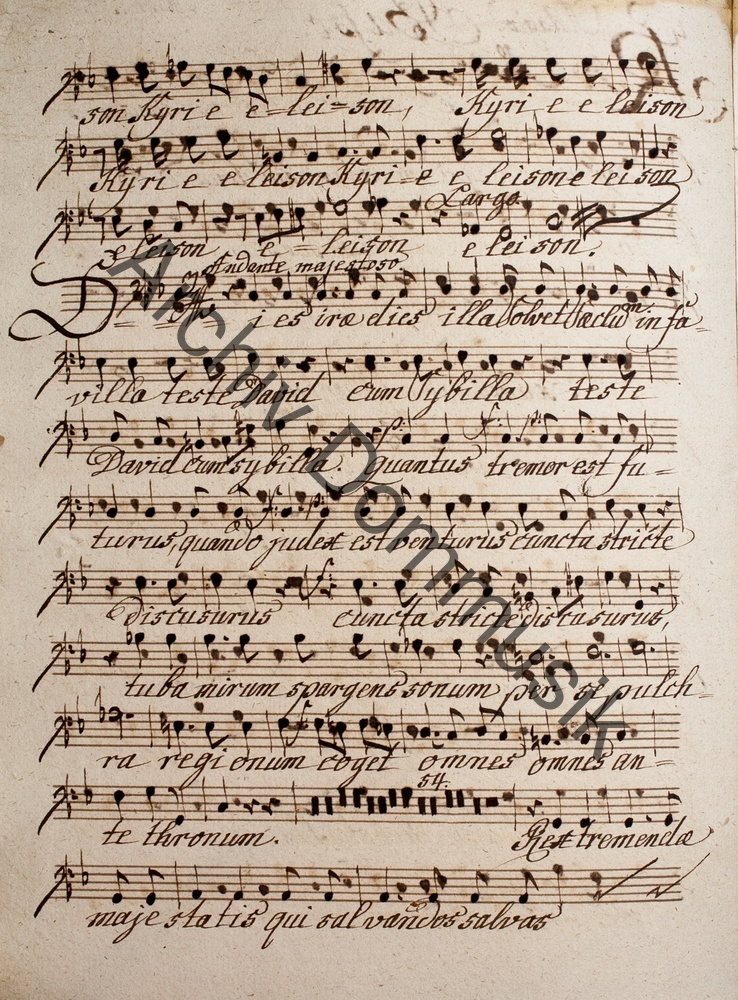 son Kyri e e-lei-son, Kyri e e leison
Kyri e e leison Kyri-e e leison e lei son
Largo.
e leison e = leison e lei son.
Andante majestoso.
Di es iræ dies illa Solvet Sæclũ in fa-
villa teste David cum Sybilla teste
David cum sybilla. Quantus tremor est fu=
turus, quando judex est venturus cuncta stricte
discusurus cuncta stricte discusurus,
tuba mirum spargens sonum per se pulch-
ra regi onum coget omnes omnes an=
54.
te thronum. Rex tremendæ
maje statis qui sal vandos salvas
Archiv Dommusik